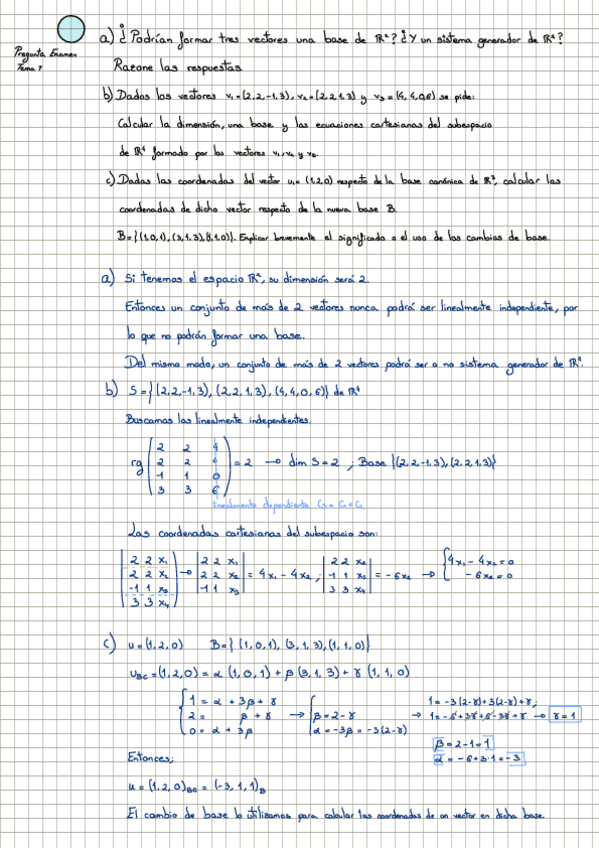 Pregunta Examen
Tema 1
a) ¿Podrían formar tres vectores una base de ℝ²? ¿Y un sistema generador de ℝ²?
Razone las respuestas
b) Dados los vectores v₁=(2,2,-1,3), v₂=(2,2,1,3) y v₃=(4,4,0,6) se pide:
Calcular la dimensión, una base y las ecuaciones cartesianas del subespacio
de ℝ⁴ formado por los vectores v₁,v₂ y v₃.
c) Dadas las coordenadas del vector u₁=(1,2,0) respecto de la base canónica de ℝ³, calcular las
coordenadas de dicho vector respecto de la nueva base B.
B={(1,0,1),(3,1,3),(1,1,0)}. Explicar brevemente el significado o el uso de los cambios de base.
a) Si tenemos el espacio ℝ², su dimensión será 2.
Entonces un conjunto de más de 2 vectores nunca podrá ser linealmente independiente, por
lo que no podrán formar una base.
Del mismo modo, un conjunto de más de 2 vectores podrá ser o no sistema generador de ℝ².
b) S={(2,2,-1,3),(2,2,1,3),(4,4,0,6)} de ℝ⁴
Buscamos las linealmente independientes.
2 2 4
rg 2 2 4 = 2 → dim S=2 ; Base {(2,2,-1,3),(2,2,1,3)}
-1 1 0
3 3 6
linealmente dependiente C₃=C₁+C₂
Las coordenadas cartesianas del subespacio son:
2 2 x₁ 2 2 x₁ 2 2 x₂ 4x₁-4x₂=0
2 2 x₂ → 2 2 x₂ = 4x₁-4x₂ ; -1 1 x₃ = -6x₂ → -6x₂=0
-1 1 x₃ -1 1 x₃ 3 3 x₄
3 3 x₄
c) u=(1,2,0) B={(1,0,1),(3,1,3),(1,1,0)}
u_BC=(1,2,0)=α(1,0,1)+β(3,1,3)+γ(1,1,0)
1=α+3β+γ 1=-3(2-γ)+3(2-γ)+γ,
2= β+γ → β=2-γ → 1=-6+3γ+6-3γ+γ → γ=1
0=α+3β α=-3β=-3(2-γ)
β=2-1=1
α=-6+3·1=-3
Entonces;
u=(1,2,0)_BC=(-3,1,1)_B
El cambio de base lo utilizamos para calcular las coordenadas de un vector en dicha base.